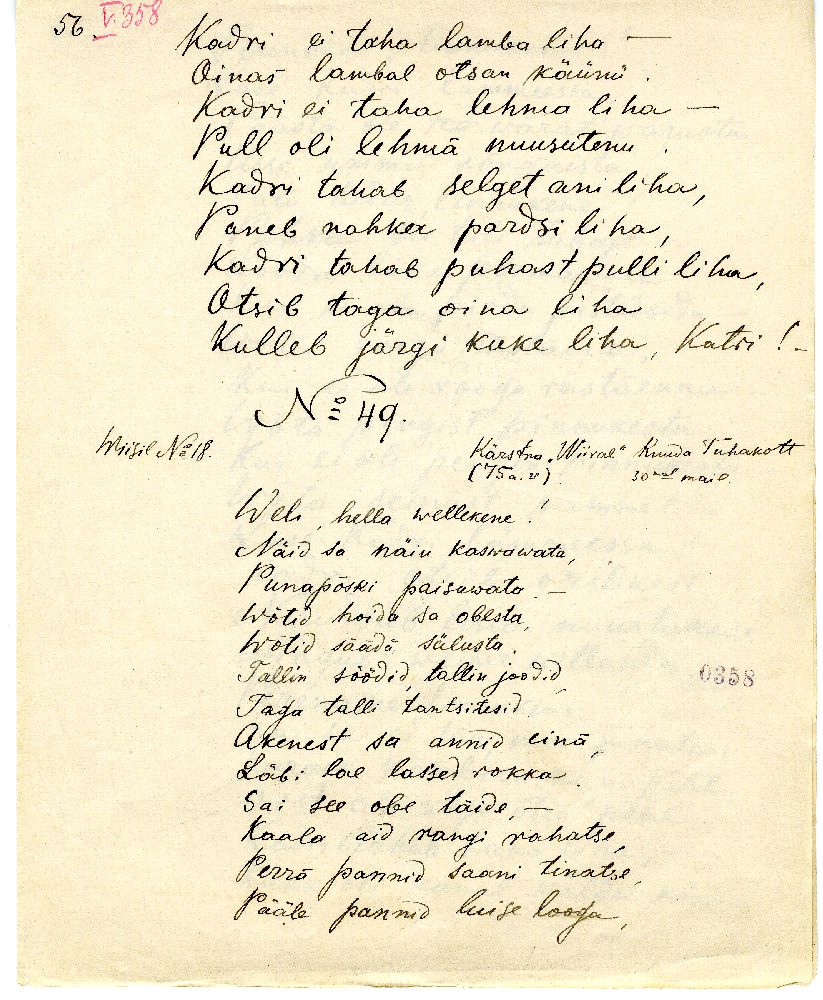 56. V. 358
Kadri ei taha lamba liha —
Oinas lambal otsan käünü.
Kadri ei taha lehma liha —
Pull oli lehmä nuusutenu.
Kadri tahab selget ani liha,
Paneb nahka pardsi liha,
Kadri tahab puhast pulli liha,
Otsib taga oina liha
Kulleb järgi kuke liha, Katri! —
No 49.
Wiisil No 18.
Kärstna „Wiiral“ Ruuda Tuhakott
(75 a. v) 30nal mail.
Weli, hella wellekene!
Näid sa näiu kaswawata,
Punapõski paisuwata. —
Wõtid hoida sa obesta,
Wõtid säädä sälusta.
Tallin söödid, tallin joodid,
Taga talli tantsitesid.
Akenest sa annid einä,
Läbi lae lassed rokka.
Sai see obe täide, —
Kaala aid rangi rahatse,
Perrä pannid saani tinatse,
Pääle pannid luise looga,
0358